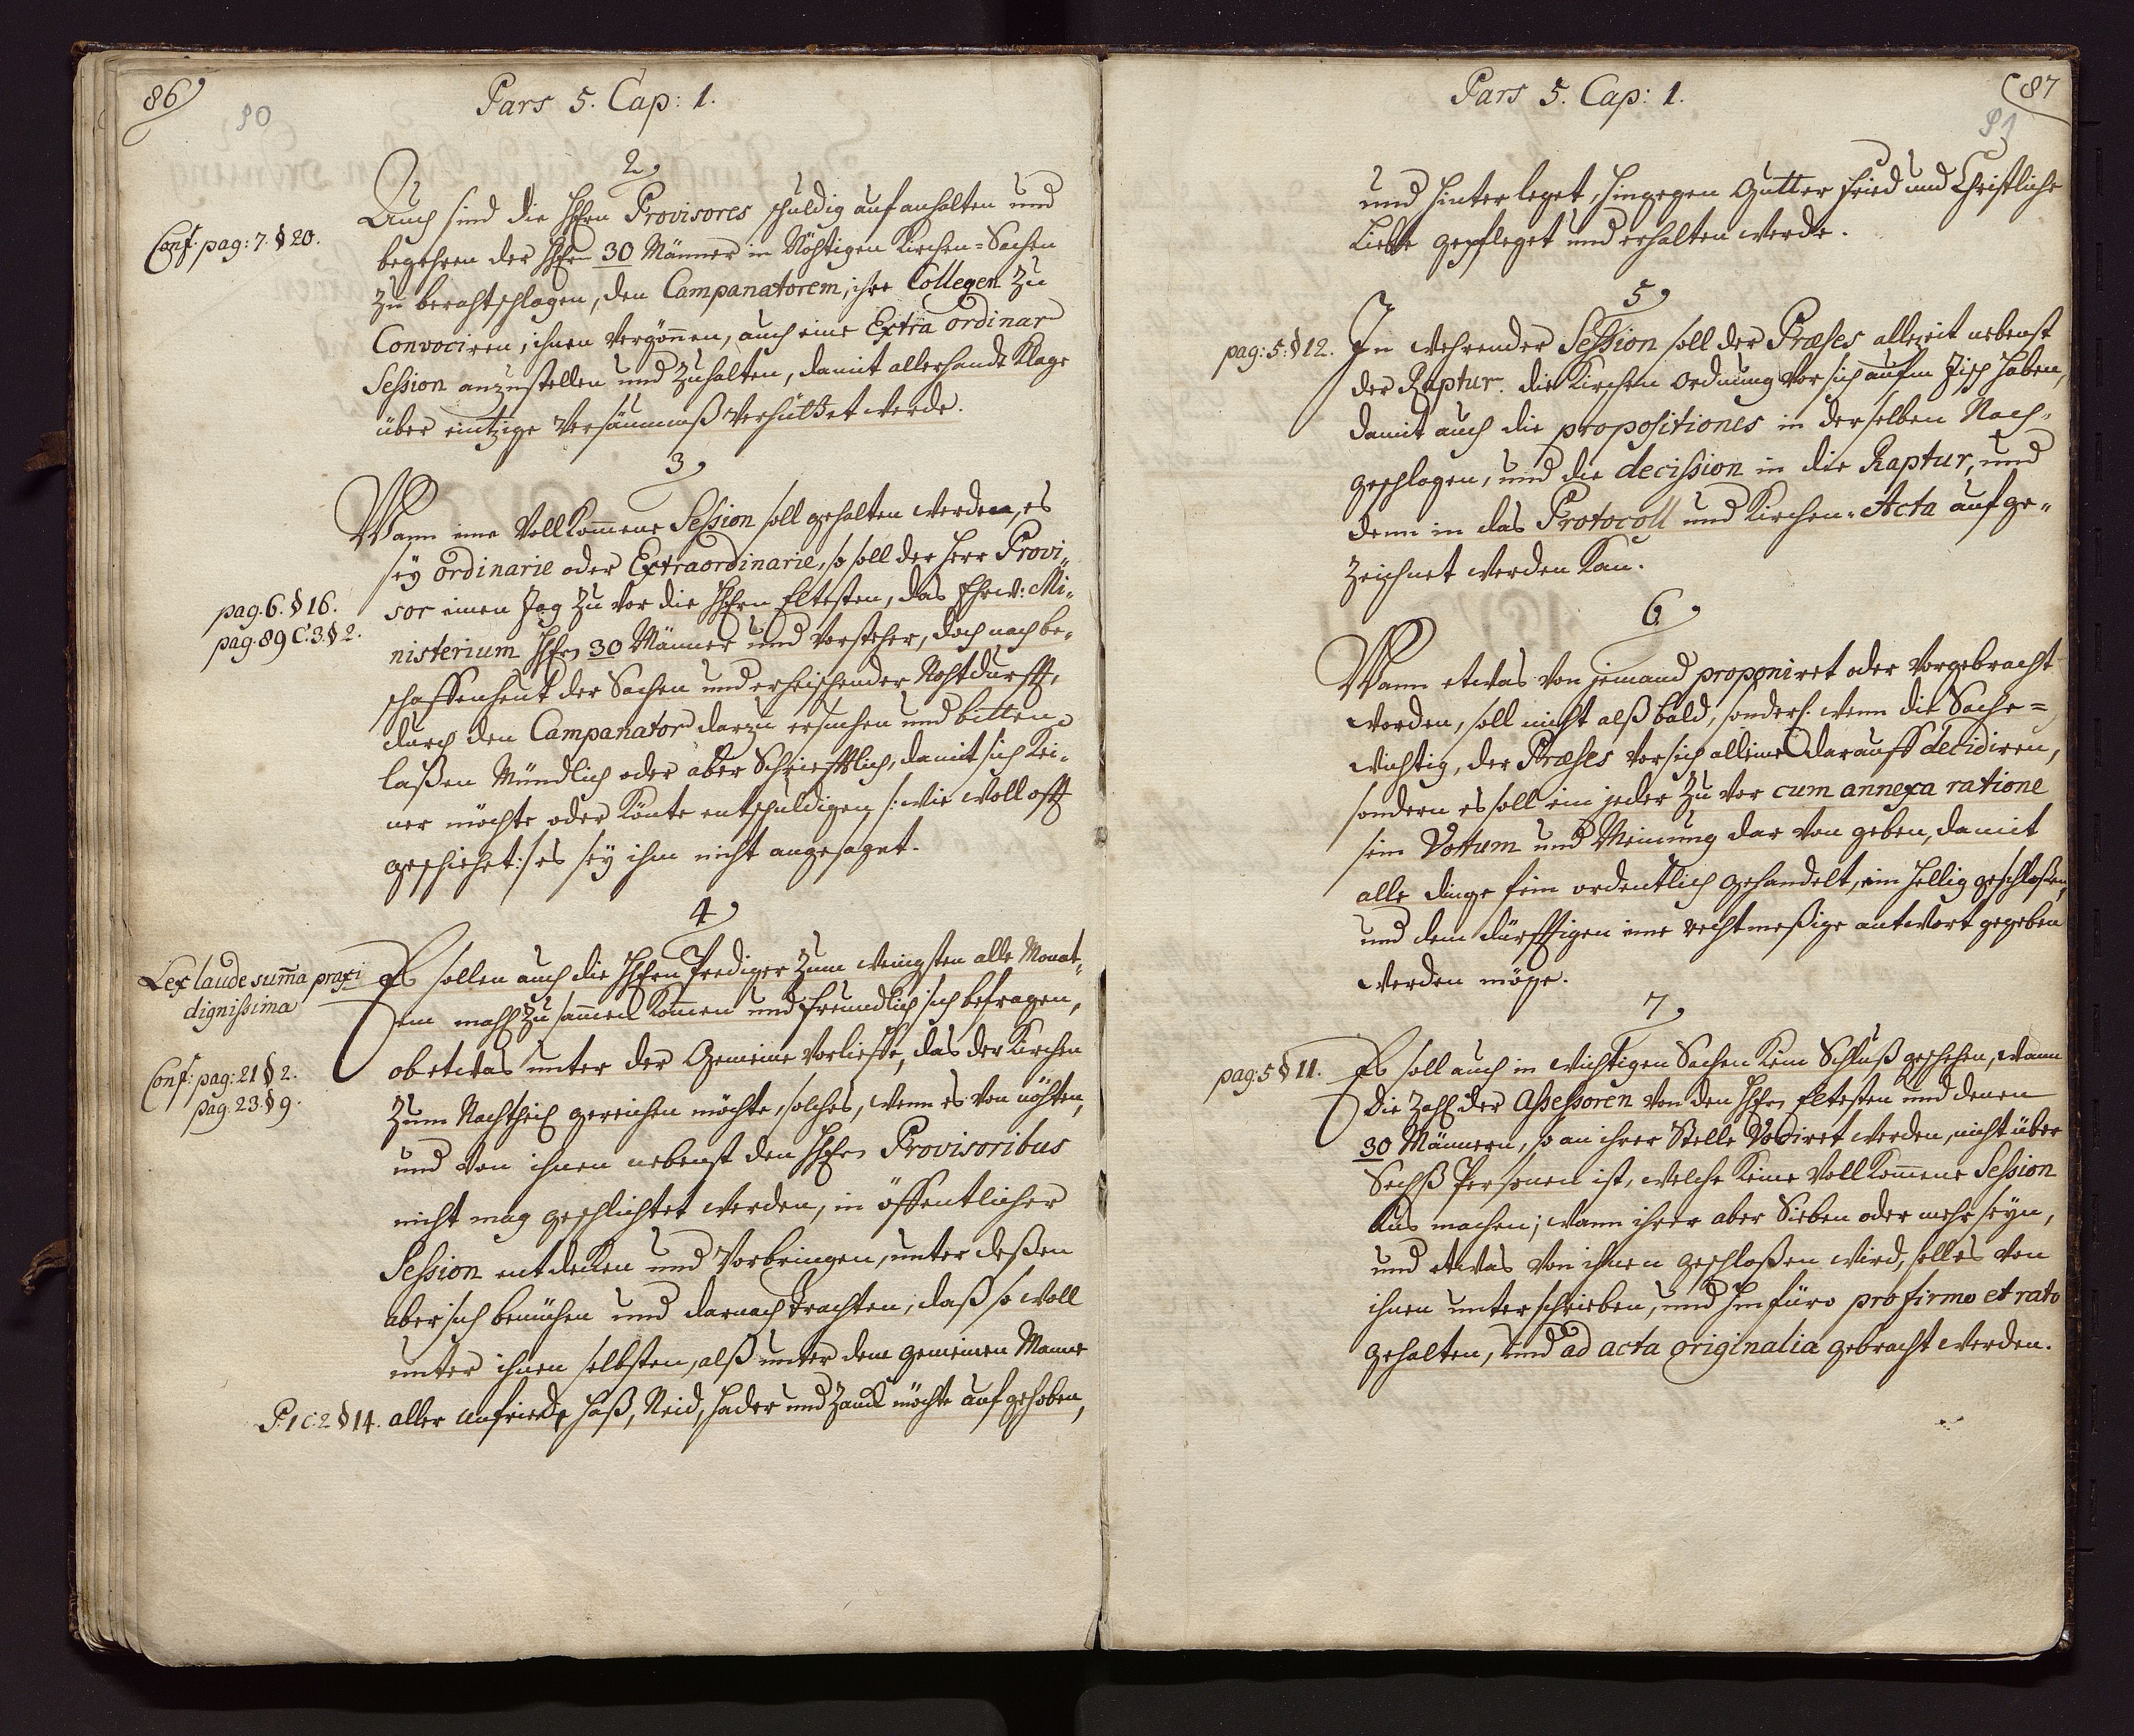 86
90
Pars 5. Cap: 1.
2
Auch sind die HHrn Provisores schuldig auf anhalten und
Conf. pag: 7. § 20.
begehren der HHrn 30 Männer in Nöhtigen Kirchen-Sachen
Zu berahtschlagen, den Campanatorem, ihre Collegen Zu
Convociren, ihnen Vergönnen, auch eine Extra ordinar
Session anzustellen und Zuhalten, damit allerhandt Klage
über eintzige Versäumnuß Verhüttet werde.
3
Wann eine Vollkom̄ene Session soll gehalten werden, es
sey ordinarie oder Extraordinarie, so soll der Herr Provi„
pag. 6. § 16.
sor einen Tag Zu vor die HHrn Eltesten, das Ehrw: Mi„
pag. 89 C. 3. § 2.
nisterium HHrn 30 Männer und Vorsteher, doch nach be„
schaffenheit der Sachen und erheischender Nohtdurfft,
durch den Campanator darzu ersuchen und bitten
laßen Mündlich oder aber Schriefftlich, damit sich kei„
ner möchte oder könte entschuldigen /: wie woll offt
geschiehet :/ es sey ihm nicht angesaget.
4
Lex laude sum̄a praxi
dignissima
Es sollen auch die HHrn Prediger Zum wenigsten alle Monat„
ein mahl Zu sam̄en kom̄en und freundlich sich befragen,
Conf: pag: 21 § 2.
ob etwas unter der Gemeine Vorlieffe, das der Kirchen
pag. 23. § 9.
Zum Nachtheil gereichen möchte, solches, wenn es Von nöhten,
und Von ihnen nebenst den HHrn Provisoribus
nicht mag geschlichtet werden, in öffentlicher
Session entdecken und Vorbringen, unter deßen
aber sich bemühen und darnach trachten, daß so woll
unter ihnen selbsten, alß unter dem gemeinen Manne
P. 1 C. 2 § 14.
aller Unfriede Haß, Neid, Hader und Zanck möchte aufgehoben,
Pars 5. Cap: 1.
87
91
und hinterleget, hingegen Gutter Fried und Christliche
Liebe gepfleget und erhalten werde.
5
pag: 5. § 12.
In wehrender Session soll der Præses allezeit nebenst
der Raptur. die Kirchen Ordnung Vor sich aufm Tisch haben,
damit auch die propositiones in derselben Nach-
geschlagen, und die decission in die Raptur, und
denn in das Protocoll und Kirchen-Acta aufge„
Zeichnet werden kan.
6
Wann etwas Von jemand proponiret oder Vorgebracht
worden, soll nicht alß bald, sonderl. wenn die Sache =
wichtig, der Præses Vor sich alleine darauff decidiren,
sondern es soll ein jeder Zu vor cum annexa ratione
sein Votum und Meinung dar Von geben, damit
alle dinge fein ordentlich gehandelt, ein hellig geschloßen,
und dem dürfftigen eine rechtmeßige antwort gegeben
werden möge.
7
pag: 5 § 11.
Es soll auch in wichtigen Sachen kein Schluß geschehen, wann
die Zahl der Assessoren Von den HHrn Eltesten und denen
30 Männern, so an ihrer Stelle Vociret werden, nicht über
Sechß Personen ist, welche keine Vollkom̄ene Session
Aus machen; wann ihrer aber Sieben oder mehr seyn,
und etwas Von ihnen geschloßen wird, soll es Von
ihnen unterschrieben, und hinfüro pro firmo et rato
gehalten, und ad acta originalia gebracht werden.